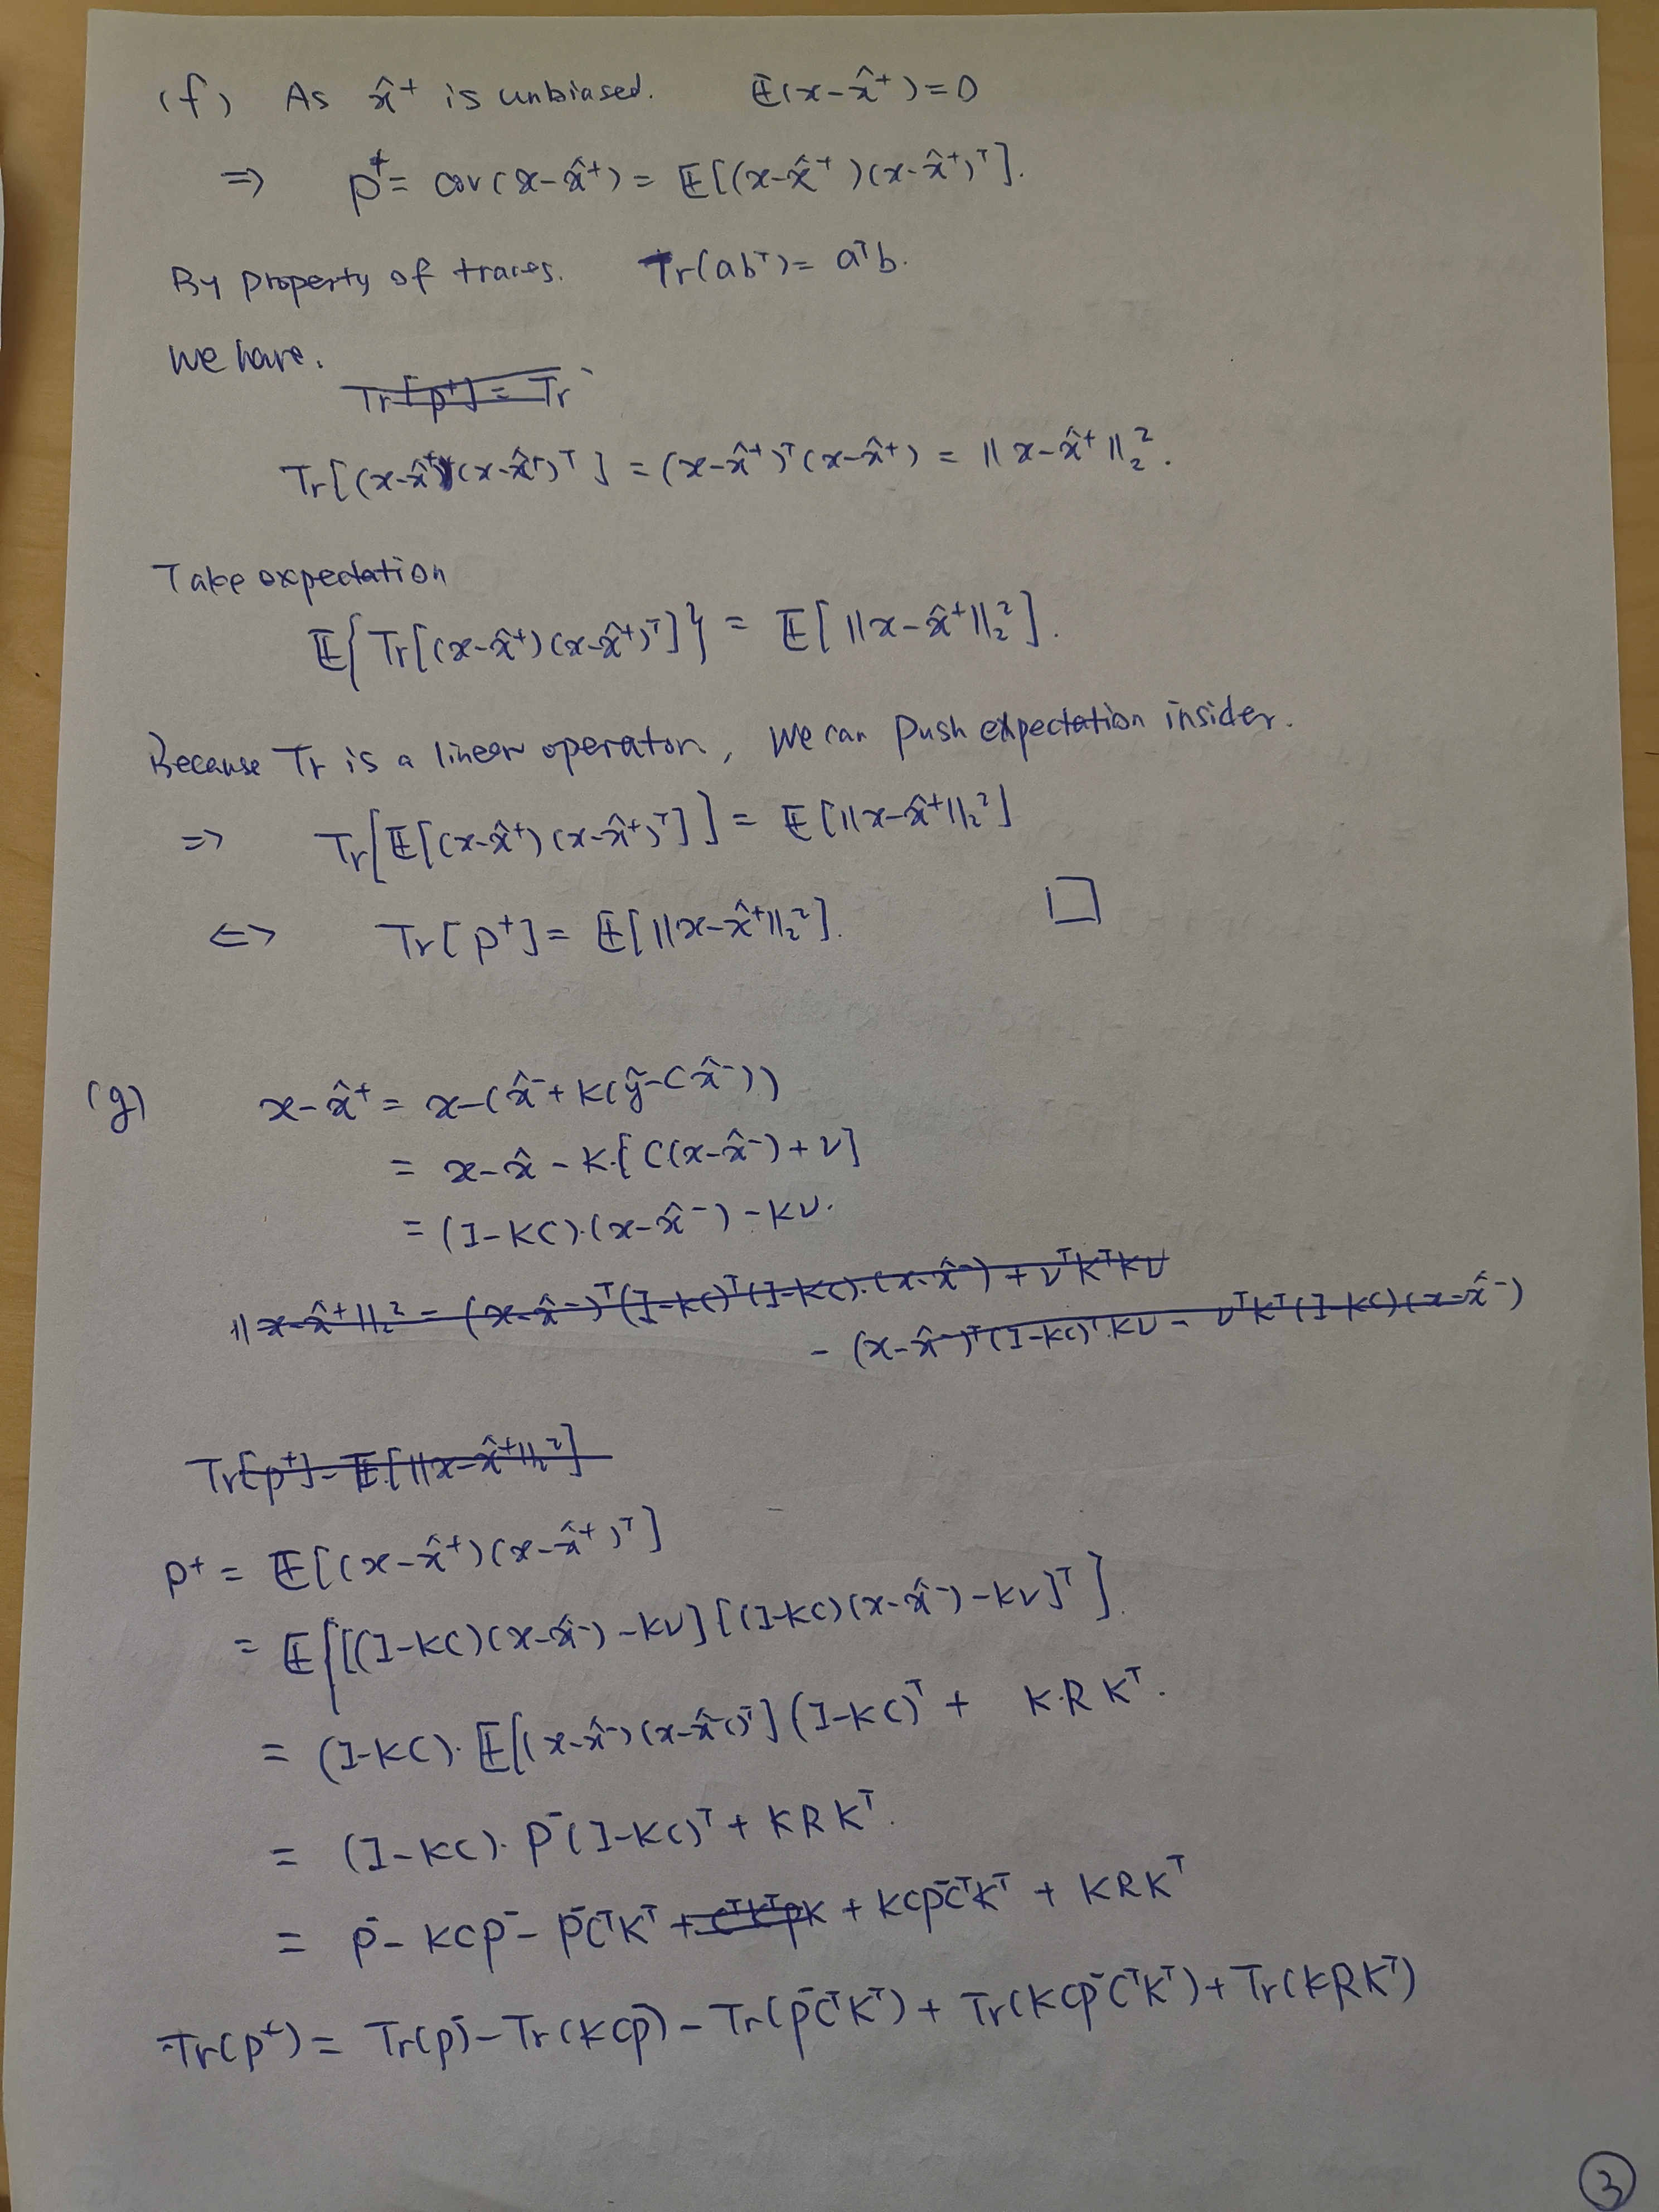 (f) As x̂⁺ is unbiased. 𝔼(x-x̂⁺)=0
=> p⁺= cov(x-x̂⁺)= 𝔼[(x-x̂⁺)(x-x̂⁺)ᵀ].
By property of traces. Tr(abᵀ)= aᵀb.
We have.
Tr[p⁺] = Tr
Tr[(x-x̂⁺)(x-x̂⁺)ᵀ] = (x-x̂⁺)ᵀ(x-x̂⁺) = ||x-x̂⁺||₂².
Take expectation
𝔼{Tr[(x-x̂⁺)(x-x̂⁺)ᵀ]} = 𝔼[||x-x̂⁺||₂²].
Because Tr is a linear operator, we can push expectation insider.
=> Tr[𝔼[(x-x̂⁺)(x-x̂⁺)ᵀ]] = 𝔼[||x-x̂⁺||₂²]
<=> Tr[p⁺]= 𝔼[||x-x̂⁺||₂²]. □
(g) x-x̂⁺ = x-(x̂⁻+K(ỹ-Cx̂⁻))
= x-x̂-K·[C(x-x̂⁻)+ν]
= (I-KC)·(x-x̂⁻)-Kν.
||x-x̂⁺||₂² = (x-x̂⁻)ᵀ(I-KC)ᵀ(I-KC)·(x-x̂⁻) + νᵀKᵀKν
- (x-x̂⁻)ᵀ(I-KC)ᵀ·Kν - νᵀKᵀ(I-KC)(x-x̂⁻)
Tr[p⁺] = 𝔼[||x-x̂⁺||₂²]
p⁺ = 𝔼[(x-x̂⁺)(x-x̂⁺)ᵀ]
= 𝔼{[(I-KC)(x-x̂⁻)-Kν][(I-KC)(x-x̂⁻)-Kν]ᵀ}.
= (I-KC)·𝔼[(x-x̂⁻)(x-x̂⁻)ᵀ](I-KC)ᵀ + K·R Kᵀ.
= (I-KC)·p⁻(I-KC)ᵀ + KRKᵀ.
= p⁻ - KCp⁻ - p⁻CᵀKᵀ + CᵀKᵀpK + KCp⁻CᵀKᵀ + KRKᵀ
Tr(p⁺) = Tr(p⁻)-Tr(KCp⁻)-Tr(p⁻CᵀKᵀ)+Tr(KCp⁻CᵀKᵀ)+Tr(KRKᵀ)
3